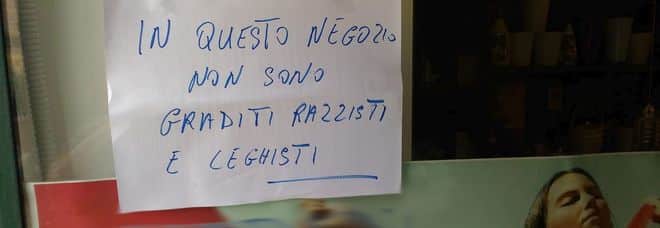 IN QUESTO NEGOZIO
NON SONO
GRADITI RAZZISTI
E LEGHISTI